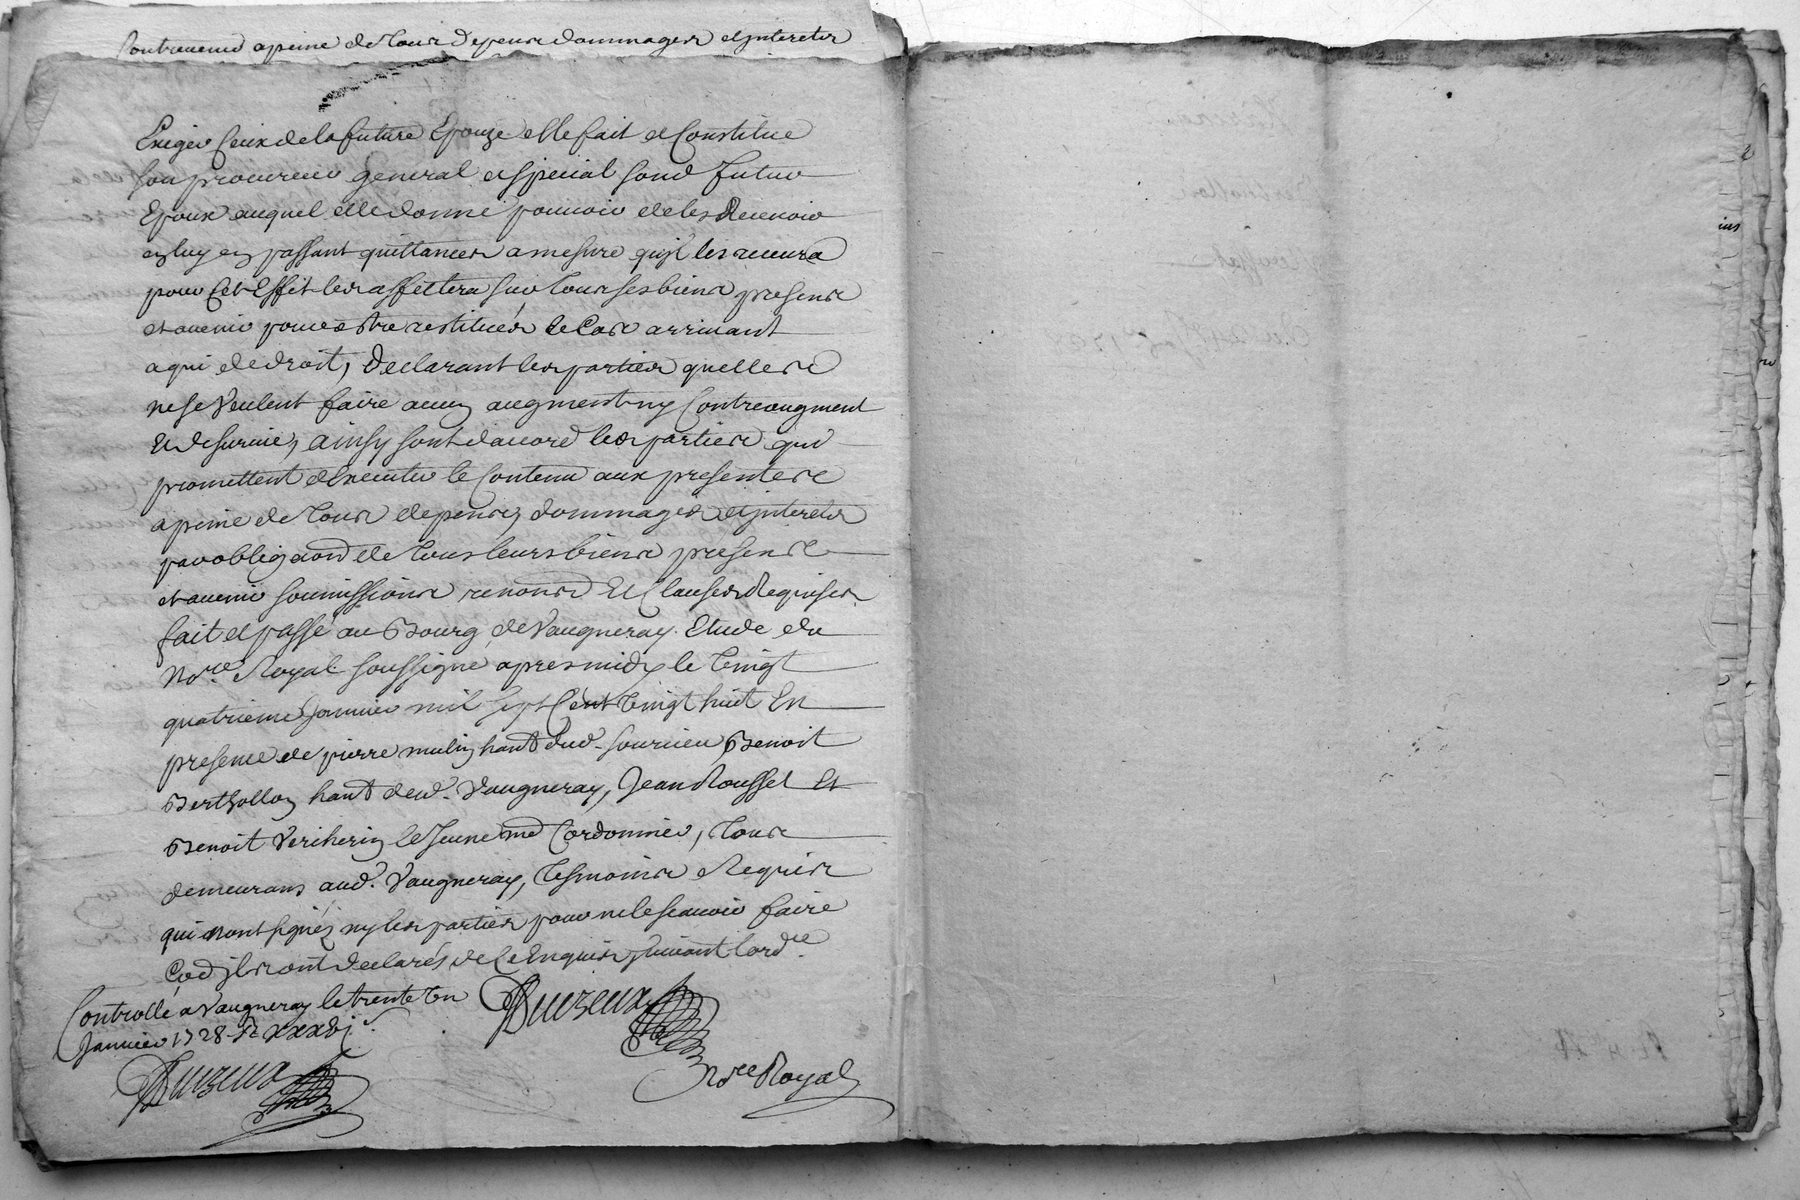 Contrevenir a peine de tous depens dommages et jnterets
Exiger Ceux de la future Epouze elle fait et Constitue
son procureur general et special sond. futur
Epoux auquel elle donne pouvoir de les Recevoir
en luy en passant quittances a mesure quil les recevra
pour Cet Effet les affettera sur tous ses biens presens
et avenir pour estre restitués le Cas arrivant
a qui de droit, Declarant les parties quelles
ne se Veulent faire aucun augment ny Contreaugment
Et de survie, ainsy sont d'acord les parties qui
promettent d'Executer le Contenu aux presentes
a peine de tous depens, dommages et jnterets
par obligaon de tous leurs biens presens
et avenir soumissions renons Et Clauses Requises
fait et passé au Bourg de Vaugneray Etude du
Nore Royal soussigné apres midy le Vingt
quatrieme Janvier mil sept Cent Vingt huit En
presence de pierre mulin hant dud. sourcieu, Benoit
Berthollon hant dud. Vaugneray, Jean Roussel Et
Benoit Vericherin le Jeune me Cordonnier, tous
demeurans aud. Vaugneray, tesmoins Requis
qui n'ont signés ny les parties pour ne le scavoir faire
jls ont declarés de Ce Enquis suivant lordce
Controllé a Vaugneray le trente Un
Janvier 1728.
Nore Royal